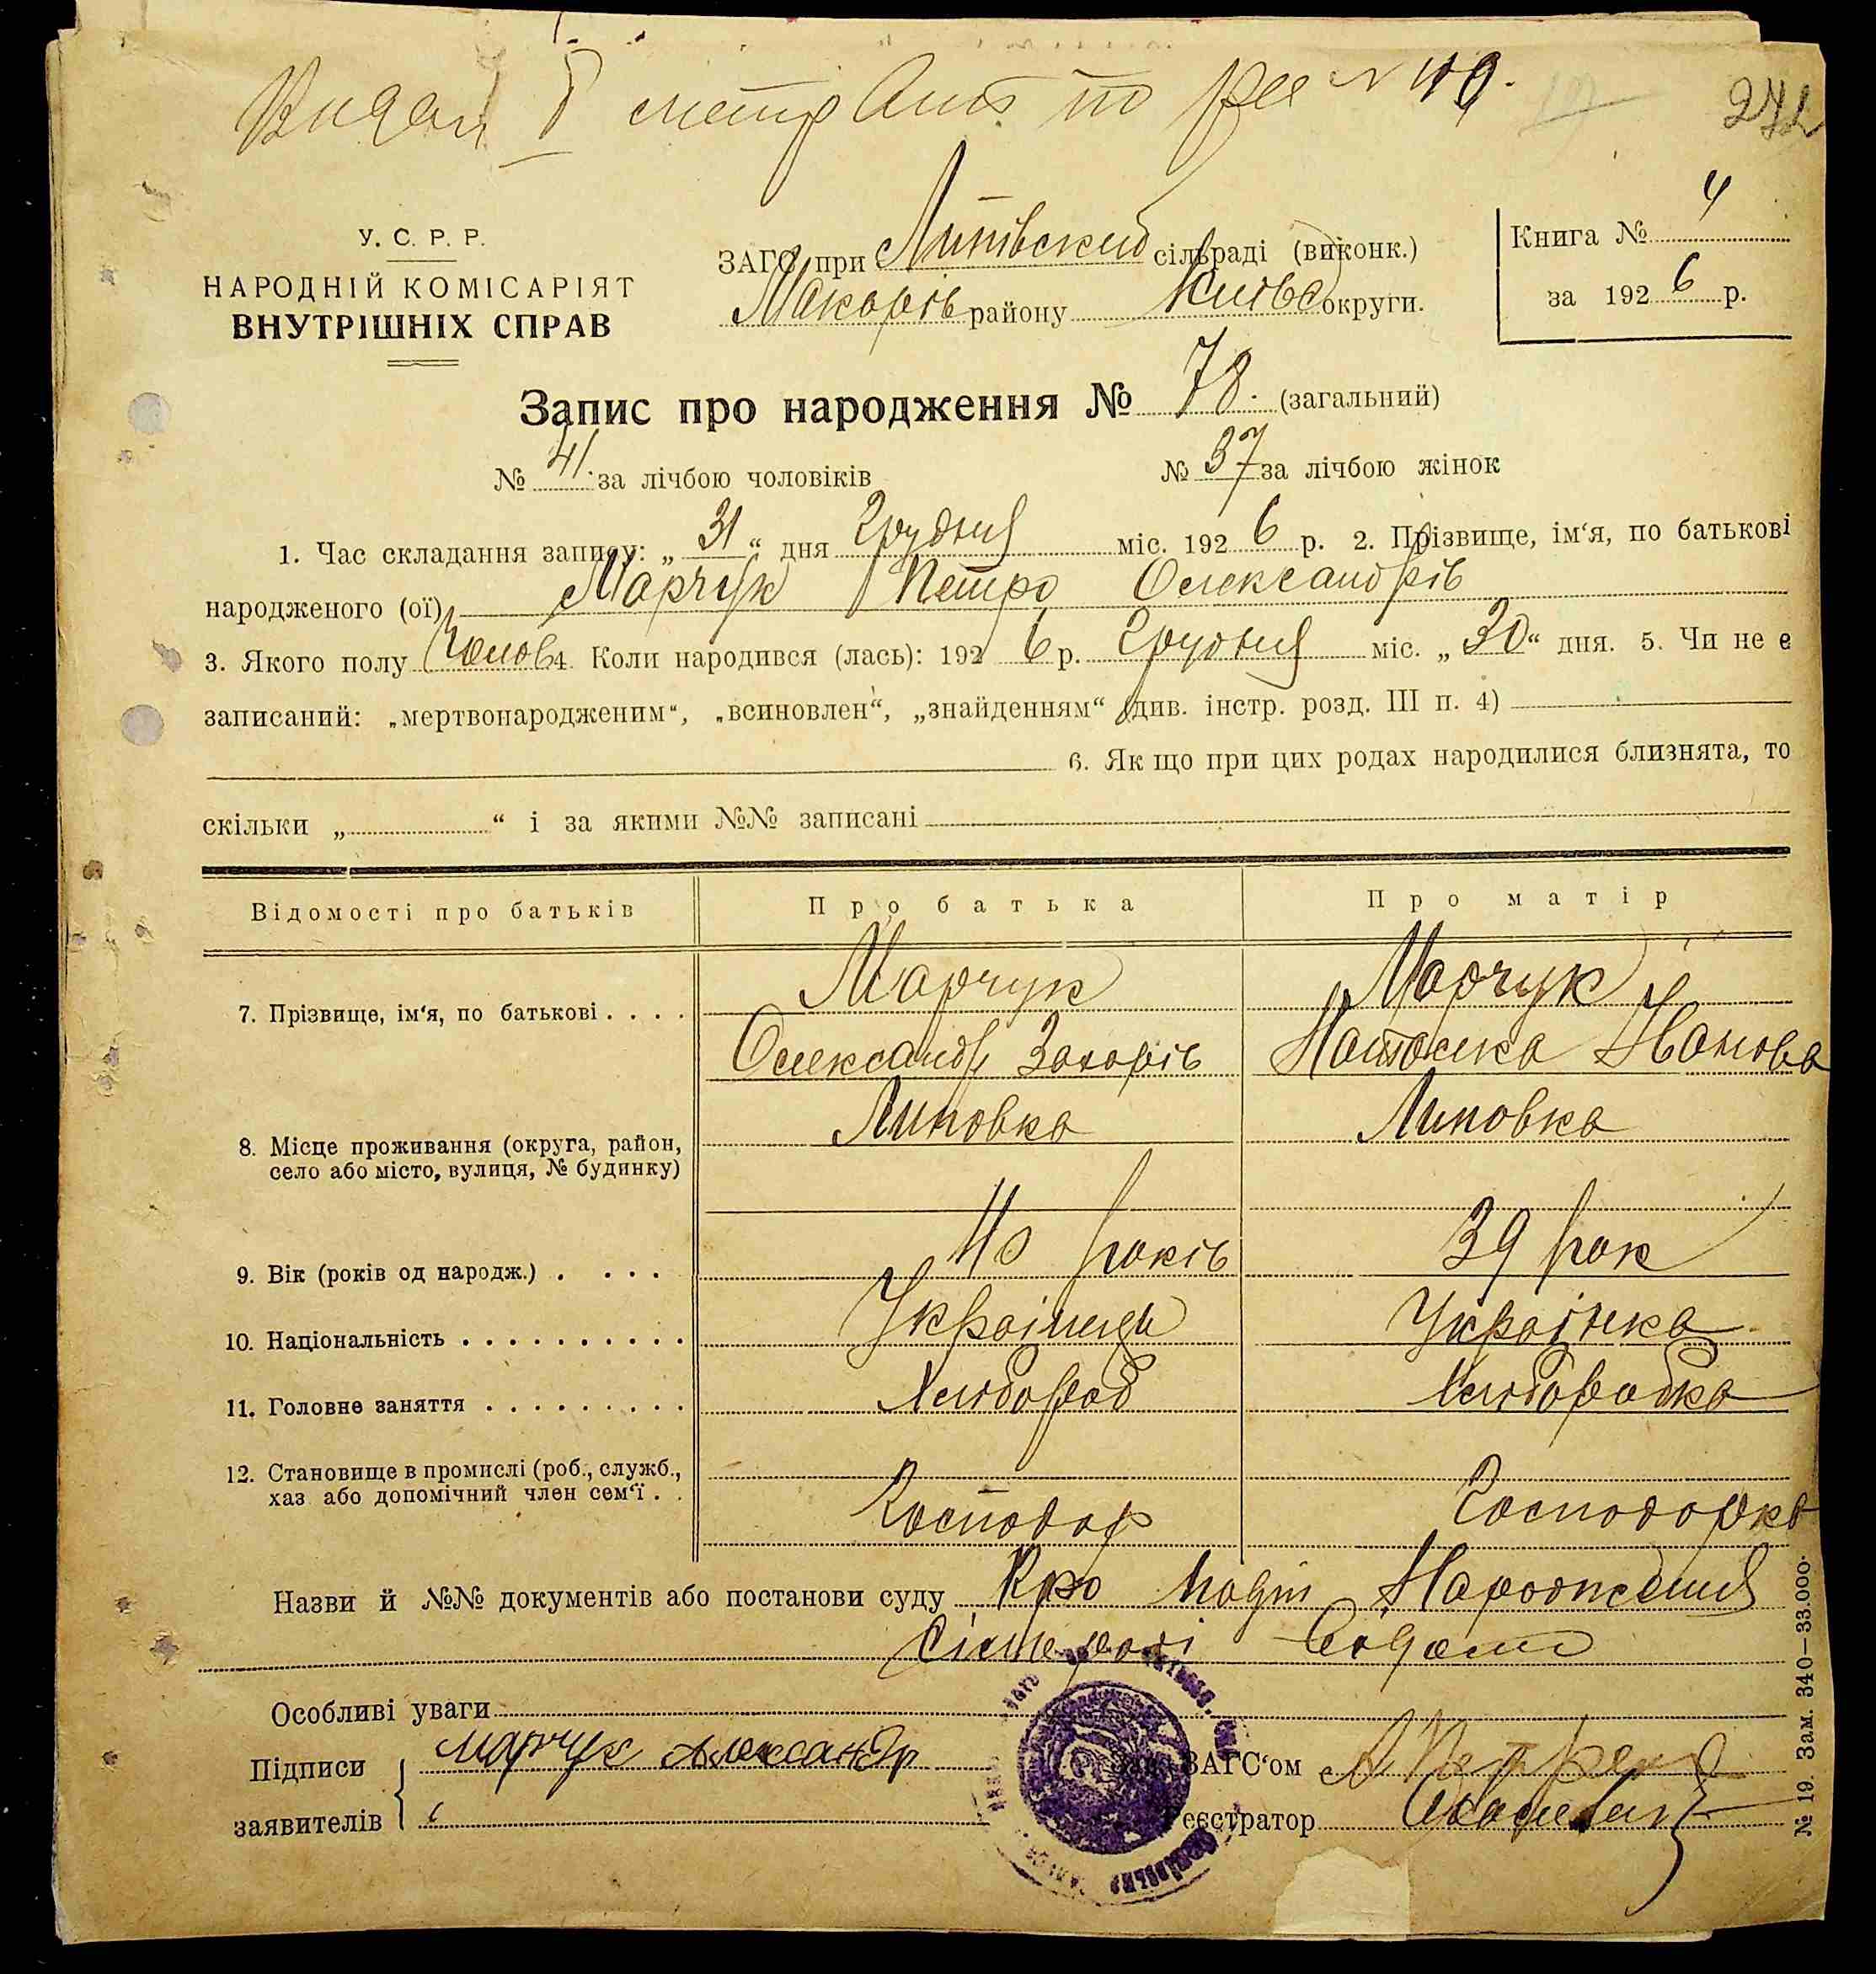 по № 119.
У. С. Р. Р.
НАРОДНІЙ КОМІСАРІЯТ
ВНУТРІШНІХ СПРАВ
ЗАГС при Липівский сільраді (виконк.)
Макарів району Київс округи.
Книга № 4
за 1926 р.
Запис про народження № 78. (загальний)
№ 41. за лічбою чоловіків № 37 за лічбою жінок
1. Час складання запису: „31“ дня Грудня міс. 1926 р. 2. Прізвище, ім‘я, по батькові
народженого (ої) Марчук Петро Олександрів
3. Якого полу Чолов 4. Коли народився (лась): 1926 р. Грудня міс. „30“ дня. 5. Чи не є
записаний: „мертвонародженим“, „всиновлен“, „знайденням“ (див. інстр. розд. III п. 4)
6. Як що при цих родах народилися близнята, то
скільки „ “ і за якими №№ записані
Відомості про батьків Про батька Про матір
7. Прізвище, ім‘я, по батькові . . . . Марчук Марчук
Олександр Захарів Наталка Іванова
Липовка Липовка
8. Місце проживання (округа, район,
село або місто, вулиця, № будинку)
9. Вік (років од народж.) . . . . 40 років 39 рок
10. Національність . . . . . . . . . . Українець Українка
11. Головне заняття . . . . . . . . . Хлібороб Хліборобка
12. Становище в промислі (роб., служб.,
хаз або допомічний член сем‘ї . . Господар Господарка
Назви й №№ документів або постанови суду Про Народження
Особливі уваги
Підписи Марчук Александр ЗАГС‘ом
заявителів Реєстратор
№ 19. Зам. 340—33.000.